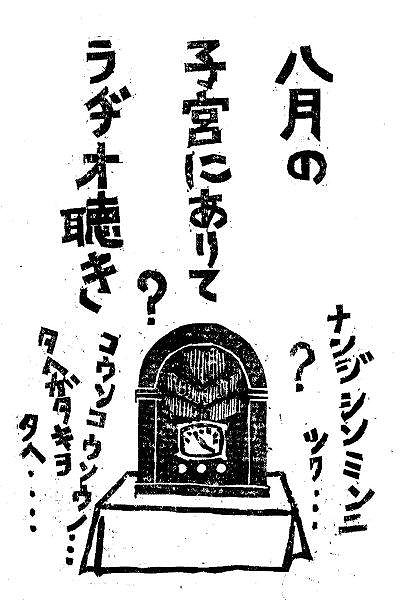 八月の
子宮にありて
ラヂオ聴きし
?
ナンジシンミンニ
ツグ・・・
?
コウソコウソウノ・・・
タヘガタキヲ
タヘ・・・・